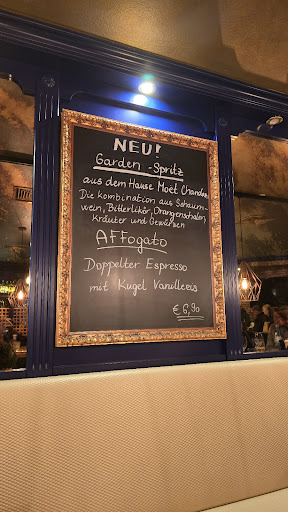 NEU!
Garden-Spritz
aus dem Hause Moët Chandon
Die Kombination aus Schaum-
wein, Bitterlikör, Orangenschalen,
Kräuter und Gewürzen
AFFOGATO
Doppelter Espresso
mit Kugel Vanilleeis
€ 6,90